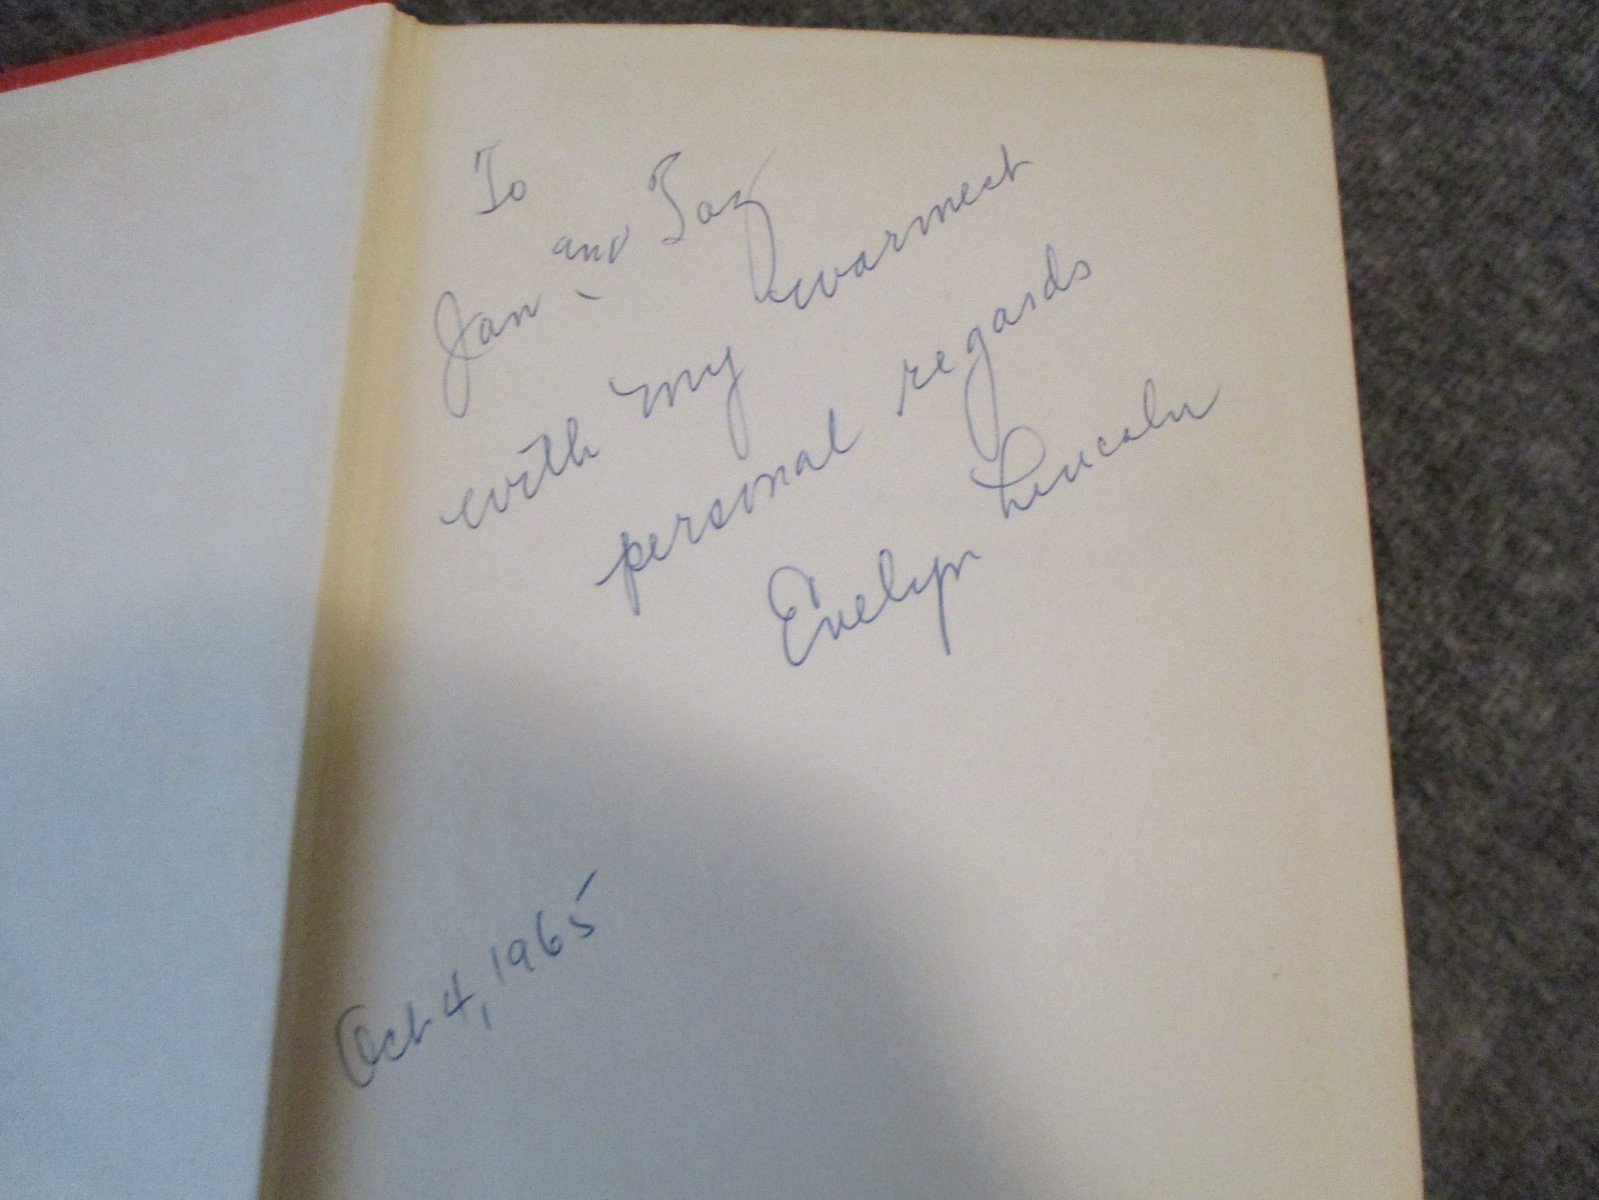 To
Jan and Taz
with my warmest
personal regards
Evelyn Lincoln
Oct 4, 1965